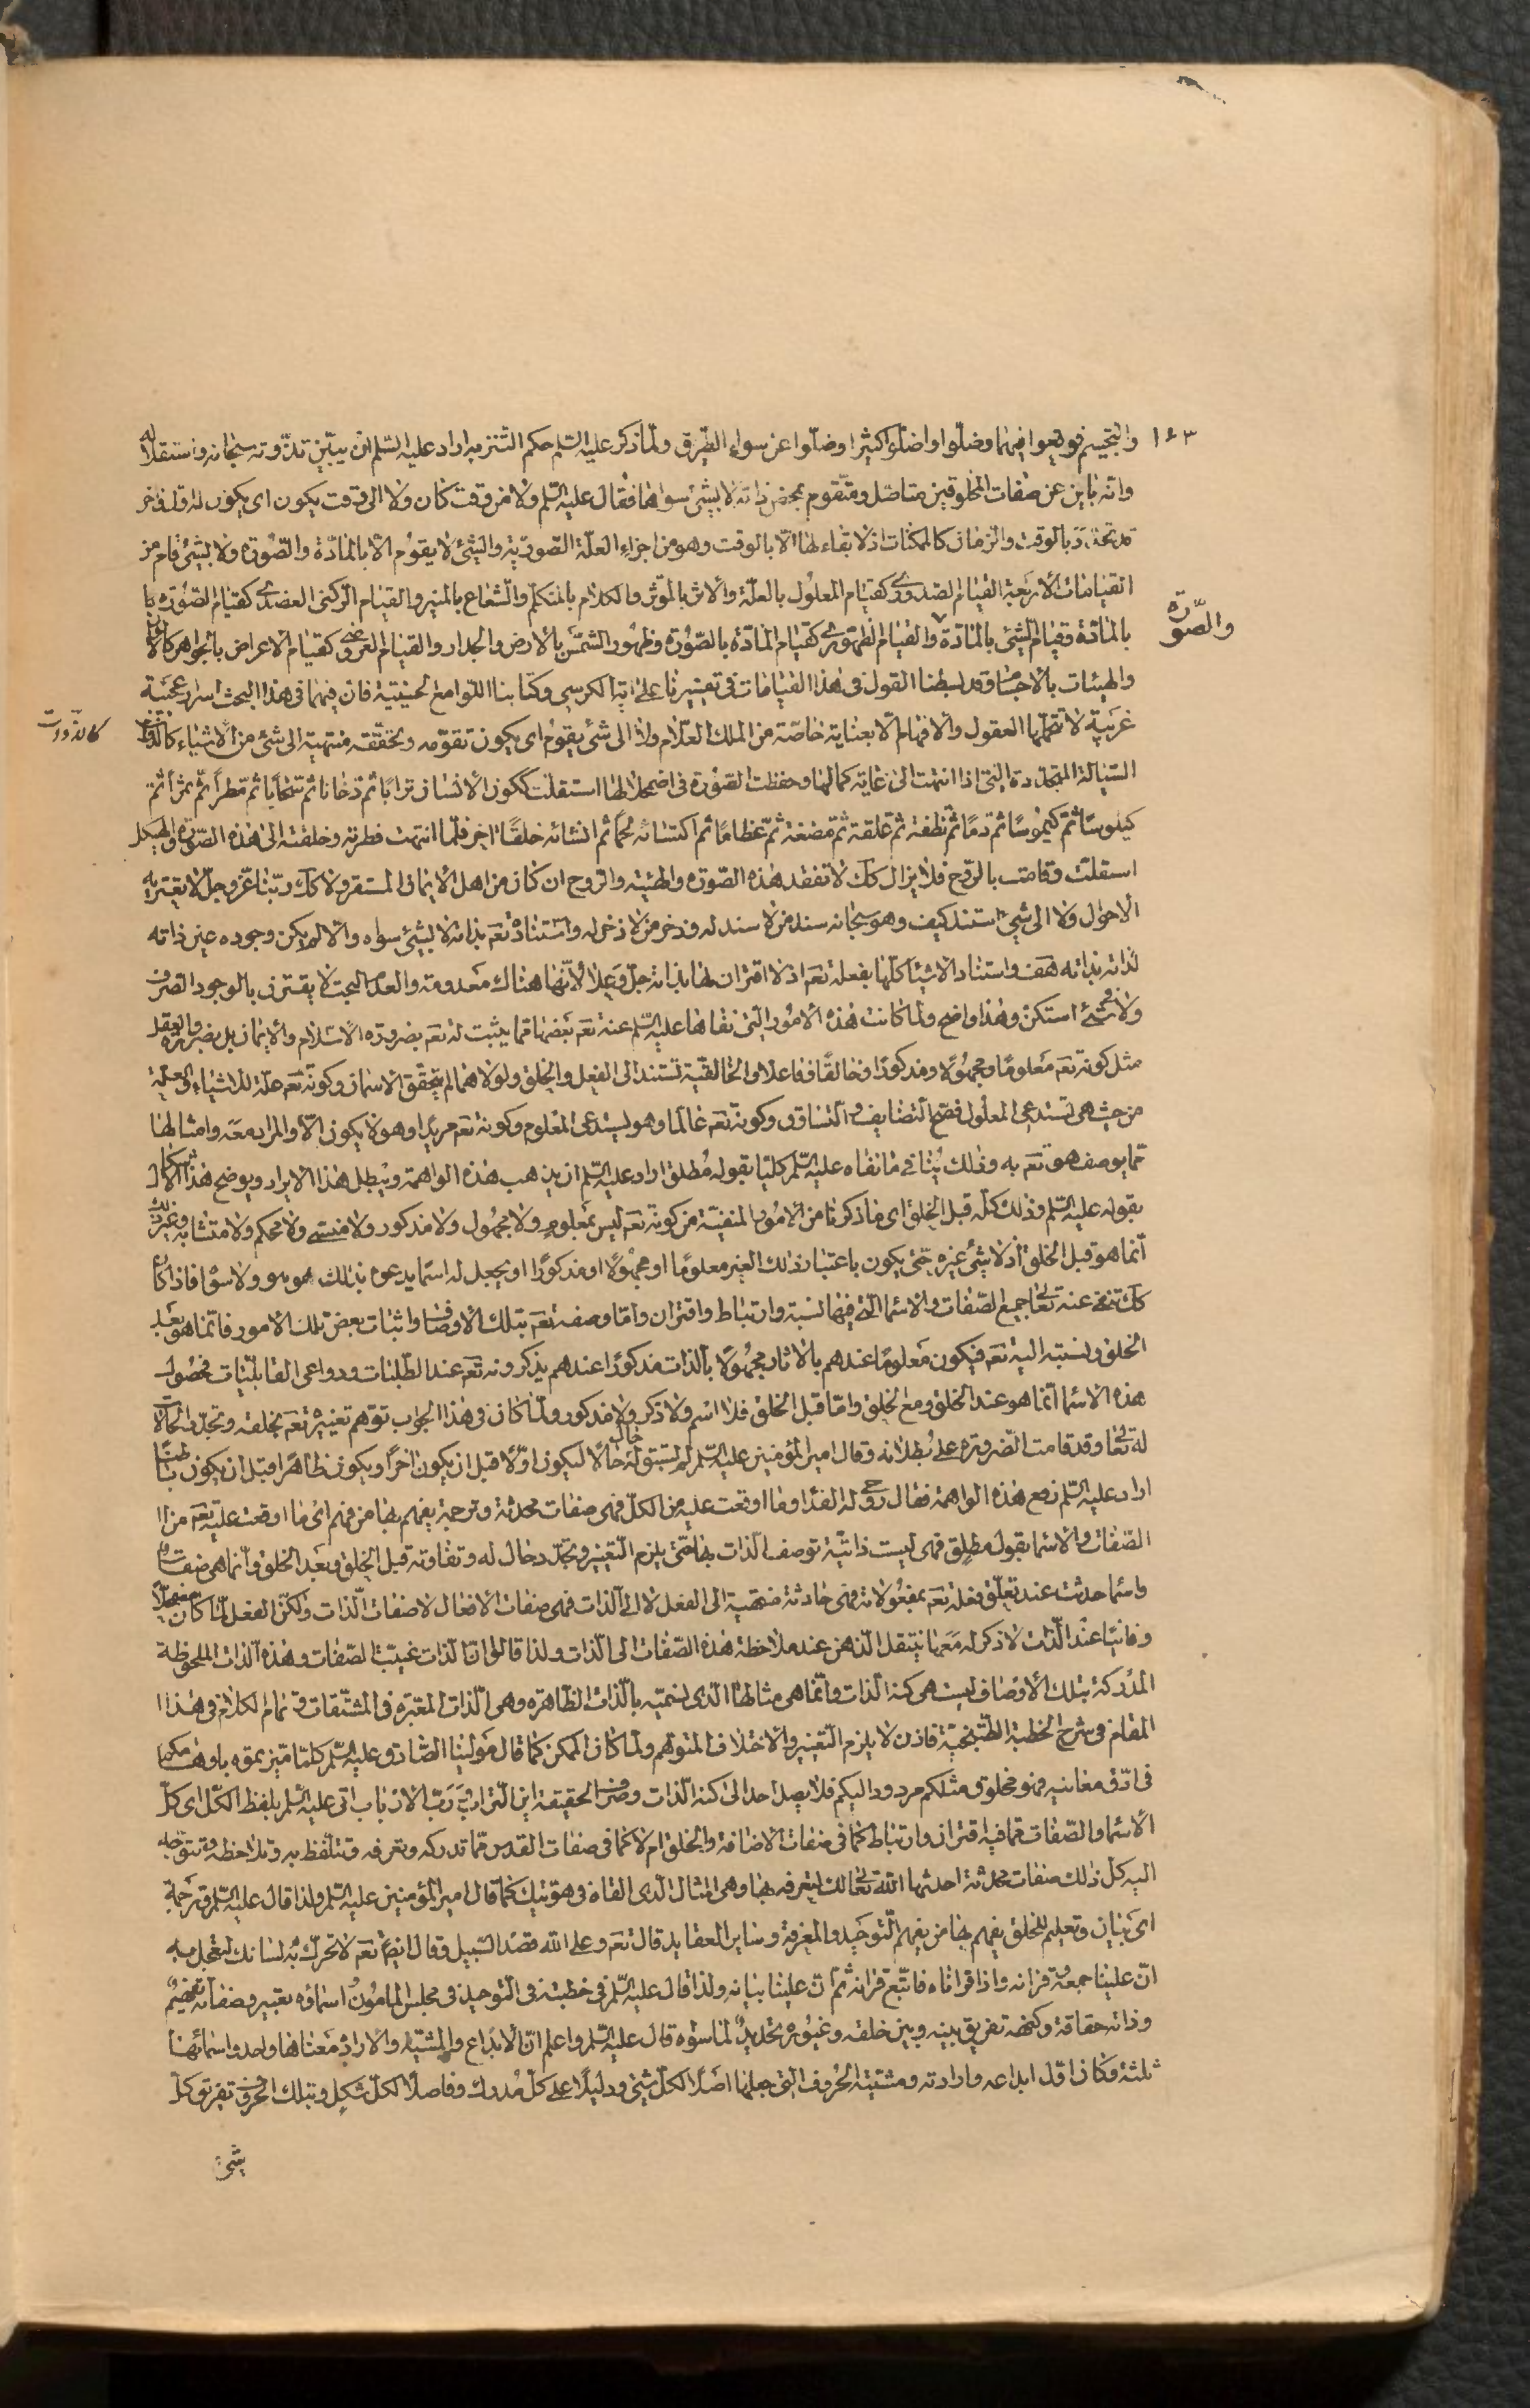 ١٤٣
والتجسيم فوقعوا فيهما وضلّوا واضلّوا كثيرا وضلّوا عن سواء الطريق ولمّا ذكر عليه السّلم حكم التنزيه اراد عليه السّلم ان يبيّن تذوّته سبحانه واستقلاله
وانه باين عن صفات المخلوقين متاصّل ومتقوم بمحض ذاته لا بشئ سواها فقال عليه السّلم ولا من وقت كان ولا الى وقت يكون اى يكون له اوّل واخر
بالوقت والزمان كالممكنات اذ لا بقاء لها الّا بالوقت وهو من اجزاء العلّة الصّوريّة والشئ لا يقوم الّا بالمادّة والصّورة ولا بشئ قام من
القيامات الأربعة القيام الصدورى كقيام المعلول بالعلّة والأثر بالمؤثر والكلام بالمتكلّم والشعاع بالمنير والقيام الرّكنى العضدى كقيام الصّورة
بالمادّة وقيام الشئ بالمادّة والقيام الظهورى كقيام المادّة بالصّورة وظهور الشمس بالأرض والجدار والقيام العرضى كقيام الاعراض بالجواهر كالألوان
والصّورة
والهيئات بالأجسام وقد بسطنا القول فى هذا القيامات فى تفسيرنا على اية الكرسى وكتابنا اللّوامع الحسينيّة فان فيهما فى هذا البحث اسرار عجيبة
غريبة لا تتحمّلها العقول والأفهام الّا بعناية خاصّة من الملك العلّام ولا الى شئ يقوم اى يكون تقوّمه وتحقّقه منتهية الى شئ من الأشياء كالذوات
كالذّوات
السّيالة المتجدّدة التى اذا انتهت الى غاية كمالها وحفظت الصّورة فى اضمحلالها استقلّت ككون الأنسان ترابًا ثم دخانا ثم سحابًا ثم مطرًا ثم ثمرًا ثم
كيلوسًا ثم كيموسًا ثم دمًا ثم نطفة ثم علقة ثم مضغة ثم عظامًا ثم اكتسائه لحمًا ثم انشائه خلقًا اخر فلمّا انتهت فطرته وخلقته الى هذه الصّورة والهيكل
استقلّت وقامت بالرّوح فلا يزال كك لا تفقد هذه الصّورة والهيئة والرّوح ان كان من اهل الأيمان المستقر ولا كك ربّنا عزّ وجلّ لا تعتريه
الأحوال ولا الى شئ استند كيف وهو سبحانه سند من لا سند له وذخر من لا ذخر له واستناده تعم بذاته لا بشئ سواه والّا لم يكن وجوده عين ذاته
لذاته بذاته هف واستناد الأشيا كلّها بفعله تعم اذ لا اقتران لها بذاته جلّ وعلا لأنّها هناك معدومة والعدم البحت لا يقترن بالوجود الصّرف
ولا فى شئ استكنّ وهذا واضح ولمّا كانت هذه الأمور التى نفاها عليه السّلم عنه تعم بعضها ممّا يثبت له تعم بضرورة الأسلام والأيمان بل بضرورة العقل
مثل كونه تعم معلومًا ومجهولًا ومذكورًا وخالقًا وفاعلا والخالقيّة تستند الى الفعل والخلق ولولاهما لم يتحقق الاسمان وكونه تعم علّة للأشياء والعلّة
من حيث هى تستدعى المعلول فصحّ التضايف والتساوق وكونه تعم عالما وهو يستدعى المعلوم وكونه تعم مريدًا وهو لا يكون الّا والمراد معه وامثالها
ممّا يوصف هو تعم به وذلك ينافى ما نفاه عليه السّلم كليّا بقوله مطلق اراد عليه السّلم ان يذهب هذه الواهمة ويبطل هذا الايراد ويوضح هذا الاشكال
بقوله عليه السّلم وذلك كلّه قبل الخلق اى ما ذكرنا من الأمور المنفيّة من كونه تعم ليس بمعلوم ولا مجهول ولا مذكور ولا منسى ولا محكم ولا متشابه وغير ذلك
انّما هو قبل الخلق اذ لا شئ غيره حتّى يكون باعتبار ذلك الغير معلومًا او مجهولًا او مذكورًا او يجعل له اسمًا يدعوه بذلك هو هو ولا سواه فاذا كان
كك تنتفى عنه تعالى جميع الصّفات والأسماء الّتى فيها نسبة وارتباط واقتران وامّا وصفه تعم بتلك الأوصاف واثبات بعض تلك الأمور فانّما هو بعد
الخلق ونسبته اليه تعم فيكون معلومًا عندهم بالأثار مجهولًا بالذات مذكورًا عندهم يذكرونه تعم عند الطلبات ودواعى القابليّات فحصول
هذه الأسماء انّما هو عند الخلق ومع الخلق وامّا قبل الخلق فلا اسم ولا ذكر ولا مذكور ولمّا كان فى هذا الجواب توهم تغيره تعم بخلقه وتجدّد الحالات
له تعالى وقد قامت الضّرورة على بطلانه وقال امير المؤمنين عليه السّلم لم يسبق له حال حالًا ليكون اوّلًا قبل ان يكون اخرًا ويكون ظاهرًا قبل ان يكون باطنًا
اراد عليه السّلم رفع هذه الواهمة فقال روحى له الفدا وما اوقعت عليه من الكلّ فهى صفات محدثة وترجمة يفهم بها من فهم اى ما اوقعت عليه تعم من
الصّفات والأسماء بقول مطلق فهى ليست ذاتيّة توصف الذات بها حتّى يلزم التّغيير وتجدّد حال له وتفاوته قبل الخلق وبعد الخلق وانّما هى صفات
واسماء حدثت عند تعلّق فعله تعم بمفعولاته فهى حادثة منتهية الى الفعل لا الى الذات فهى صفات الأفعال لا صفات الذّات ولكنّ الفعل لمّا كان مضمحلًا
وفانيًا عند الذّات لا ذكر له معها ينتقل الذهن عند ملاحظة هذه الصّفات الى الذّات ولذا قالوا انّ الذات غيبت الصّفات وهذه الذات الملحوظة
المدركة بتلك الأوصاف ليست هى كنه الذات وانّما هى مثالها الّذى نسميّه بالذات الظاهرة وهى الذّات المعتبرة فى المشتقّات وتمام الكلام فى هذا
المقام فى شرح الخطبة الطتنجيّة فاذن لا يلزم التّغيير والاختلاف المتوهم ولمّا كان الممكن كما قال مولينا الصّادق عليه السّلم كلّما ميّزتموه باوهامكم
فى ادقّ معانيه فهو مخلوق مثلكم مردود اليكم فلا يصل احد الى كنه الذّات وصرف الحقيقة اين التراب وربّ الأرباب اتى عليه السّلم بلفظ الكلّ اى كلّ
الأسماء والصّفات ممّا فيه اقتران وارتباط كما فى صفات الأضافة والخلق ام لا كما فى صفات القدس ممّا تدركه وتعرفه وتتلفّظ به وتلاحظه وتتوجّه
اليه كلّ ذلك صفات محدثة احدثها الله تعالى لك لتعرفه بها وهى المثال الّذى القاه فى هويّتك كما قال امير المؤمنين عليه السّلم ولذا قال عليه السّلم وترجمة
اى بيان وتعليم للخلق يفهم بها من يفهم التّوحيد والمعرفة وساير العقايد قال تعم وعلى الله قصد السّبيل وقال ايضا تعم لا تحرّك به لسانك لتعجل به
انّ علينا جمعه وقرانه واذا قراناه فاتّبع قرانه ثم انّ علينا بيانه ولذا قال عليه السّلم فى خطبته فى التّوحيد فى مجلس المامون اسماؤه تعبير وصفاته تفهيم
وذاته حقاقة وكنهه تفريق بينه وبين خلقه وغيوره تحديد لما سواه قال عليه السّلم واعلم انّ الأبداع والمشيّة والارادة معناها واحد واسمائها
ثلثة وكان اوّل ابداعه وارادته ومشيّته الحروف التى جعلها اصلًا لكلّ شئ ودليلًا على كلّ مدرك وفاصلًا لكلّ مشكل وبتلك الحروف تفريق كلّ
شئ